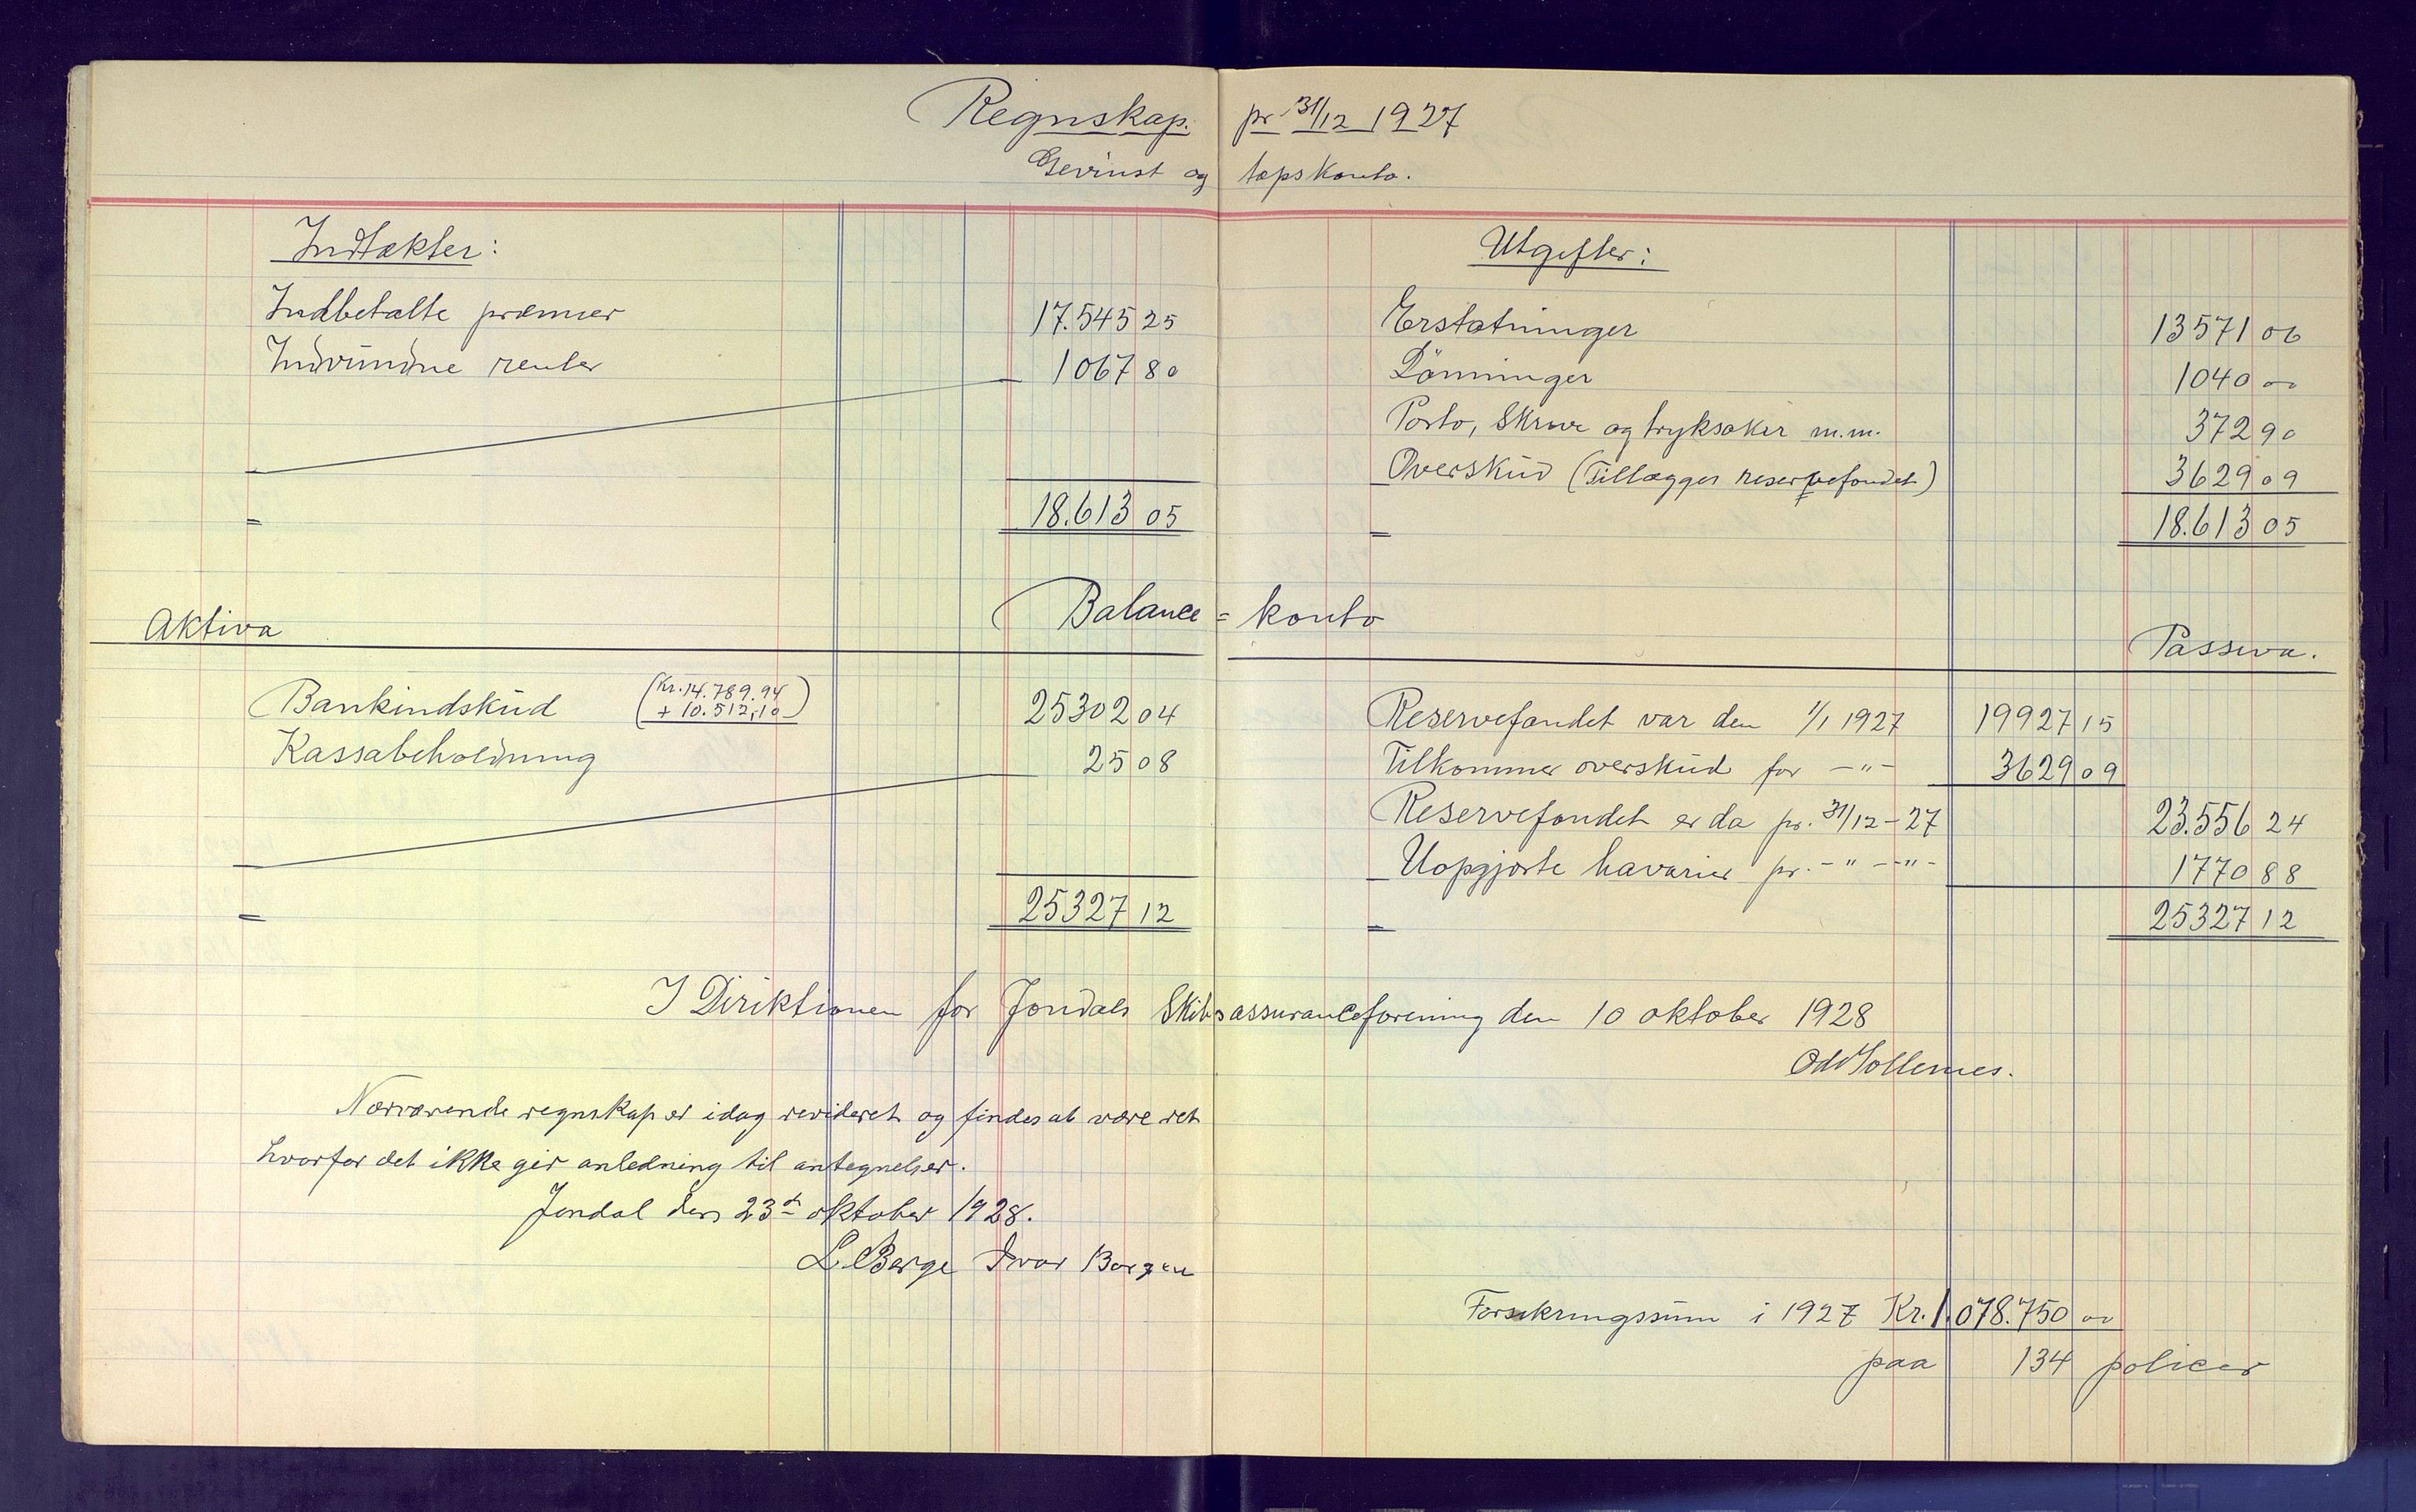 Regnskap. pr 31/12 1927
Gevinst og tapskonto.
Indtækter:
Indbetalte præmier 17.545 25
Indvundne renter 1067 80
18.613 05
Utgifter:
Erstatninger 13571 06
Lönninger 1040 00
Porto, Skrive og tryksaker m.m. 372 90
Overskud (Tillægges reservefondet) 3629 09
18.613 05
Balance = konto
Aktiva
Passiva.
Bankindskud (Kr. 14.789.94
+ 10.512,10) 25302 04
Kassabeholdning 25 08
25327 12
Reservefondet var den 1/1 1927 19927 15
Tilkommer overskud for -"- 3629 09
Reservefondet er da pr. 31/12-27 23.556 24
Uopgjorte havarier pr. -"--"- 1770 88
25327 12
I Diriktionen for Jondals Skibsassuranceforening den 10 oktober 1928
Nærværende regnskap er idag revideret og findes at være ret
hvorfor det ikke gir anledning til antegnelser.
Jondal den 23d oktober 1928.
L. Berge Ivar Borgen
Forsikringssum i 1927 Kr. 1.078.750 00
paa 134 policer